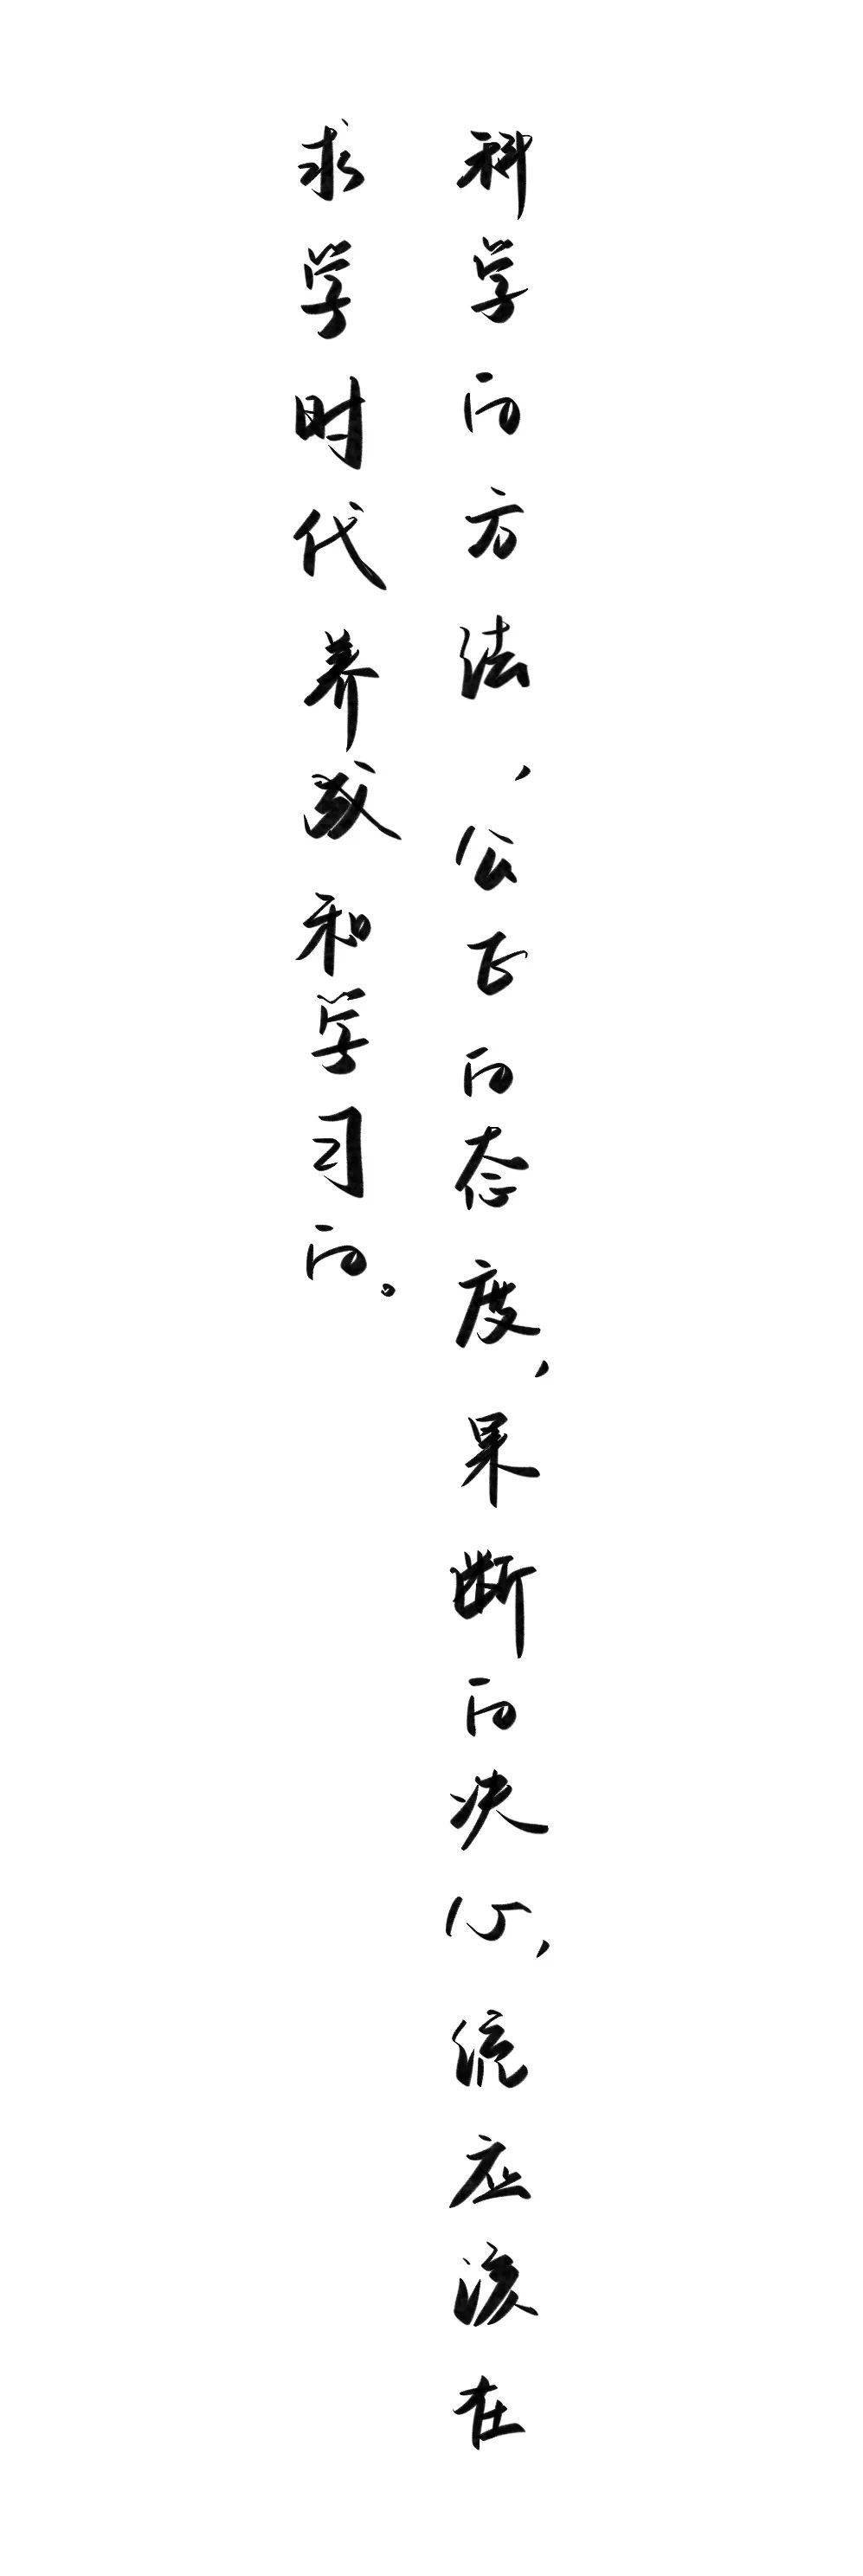 科学的方法，公正的态度，果断的决心，统应该在
求学时代养成和学习的。